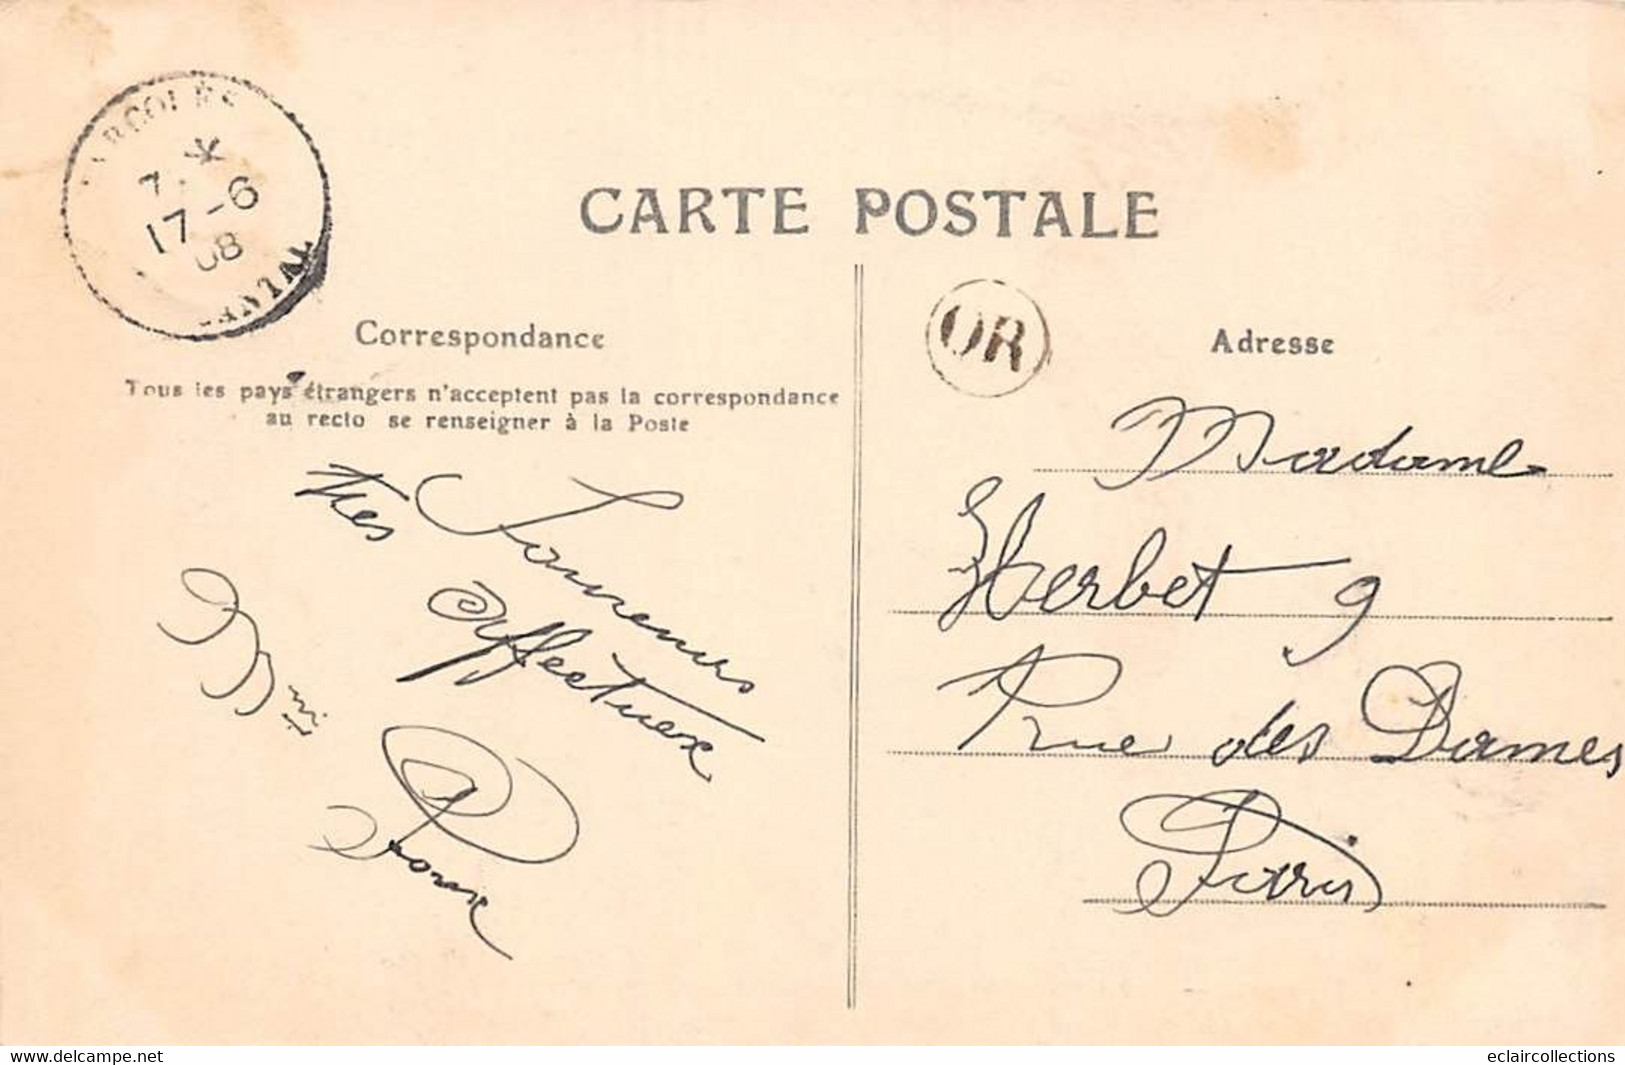 MARCOLÈS
7 *
17-6
08
CANTAL
CARTE POSTALE
Correspondance
Tous les pays étrangers n'acceptent pas la correspondance
au recto se renseigner à la Poste
OR
Adresse
très
Souvenirs
affectueux
Roux
Madame
Herbet 9
Rue des Dames
Paris
www.delcampe.net
eclaircollections